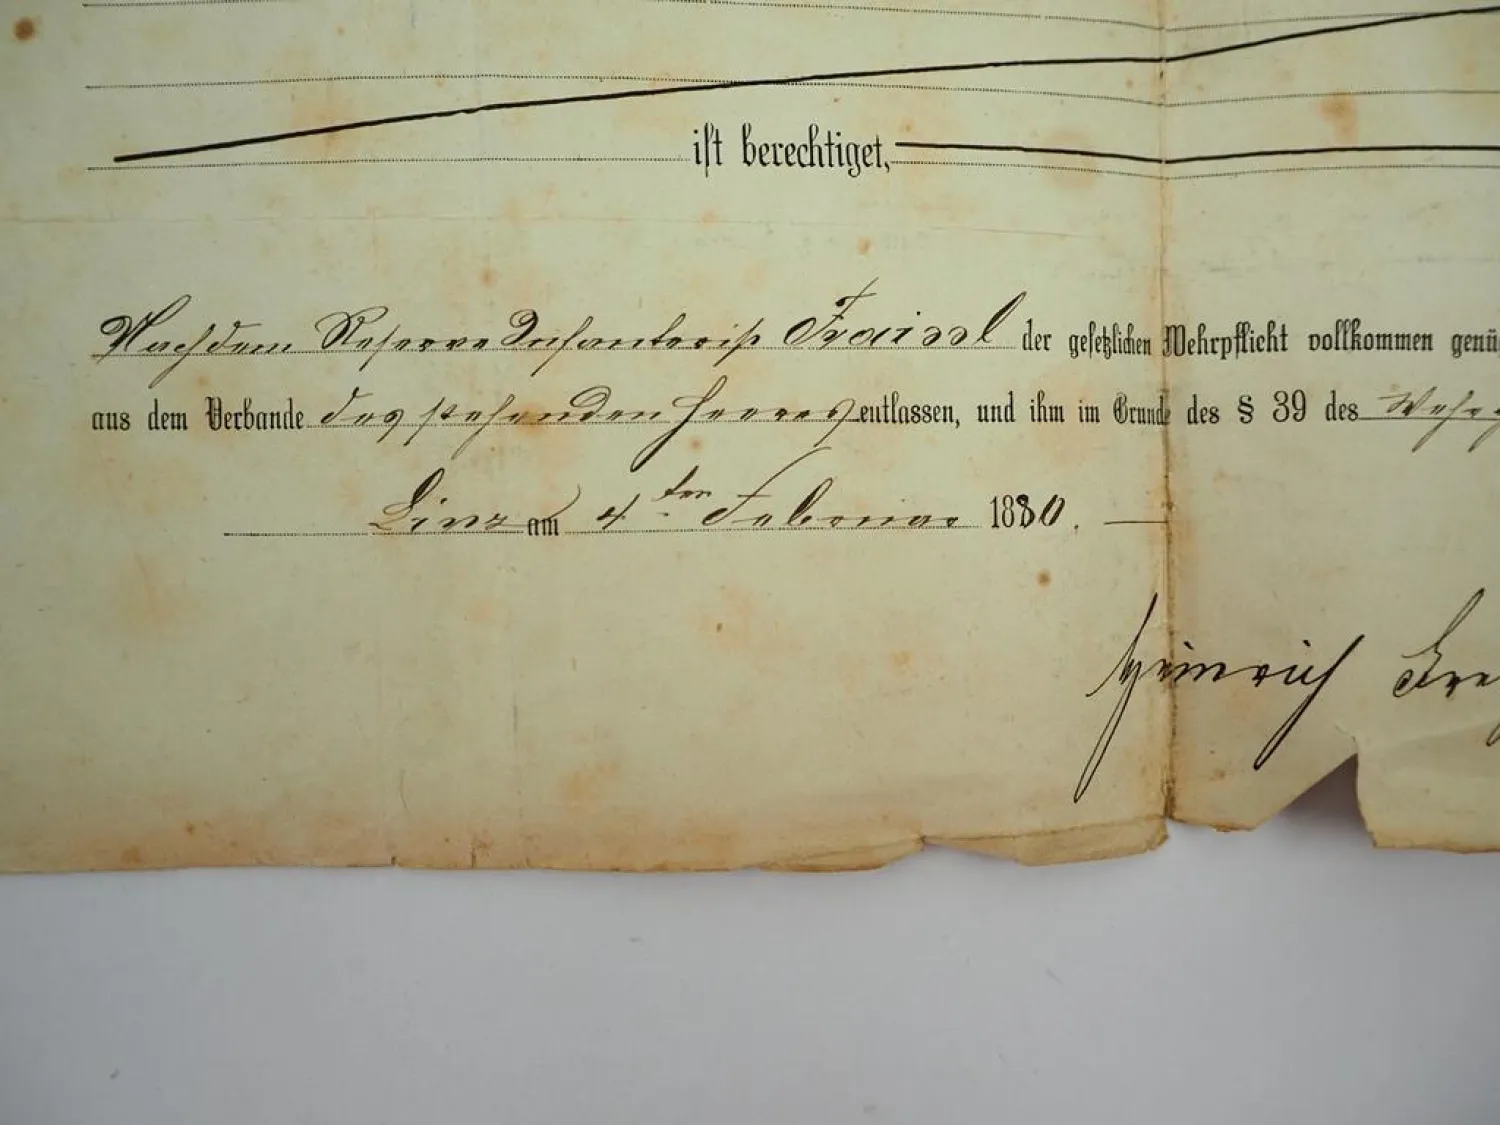 ist berechtiget,
Nachdem Reserve Infanterist Fraissl der gesetzlichen Wehrpflicht vollkommen genü
aus dem Verbande des stehenden Heeres entlassen, und ihm im Grunde des § 39 des Wehrg
Linz am 4ten Februar 1880.
Heinrich